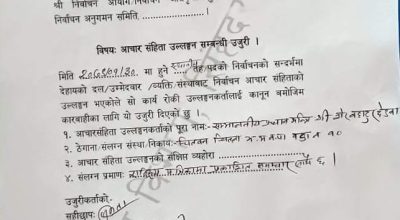 श्री निर्वाचन आयोग/निर्वाचन
निर्वाचन अनुगमन समिति, ...................।
विषय: आचार संहिता उल्लङ्घन सम्बन्धी उजुरी ।
मिति २०७९/०१/३०. मा हुने स्थानीय तह/पदको निर्वाचनको सन्दर्भमा
देहायका दल/उम्मेदवार /व्यक्ति/संस्थाबाट निर्वाचन आचार संहिताको
उल्लङ्घन भएकोले सो कार्य रोकी उल्लङ्घनकर्तालाई कानून बमोजिम
कारबाहीका लागि यो उजुरी दिएको छु ।
१. आचारसंहिता उल्लङ्घनकर्ताको पूरा नाम:- सम्माननीय प्रधानमन्त्रि श्री शेरबहादुर देउवा
२. ठेगाना/संलग्न संस्था/निकाय:- चितवन जिल्ला भ.म.न.पा वडा नं १०
३. आचार संहिता उल्लङ्घनको संक्षिप्त व्यहोरा
४. संलग्न प्रमाण: प्रकाशित समाचार ६ ।
उजुरीकर्ताको-
सहीछाप: